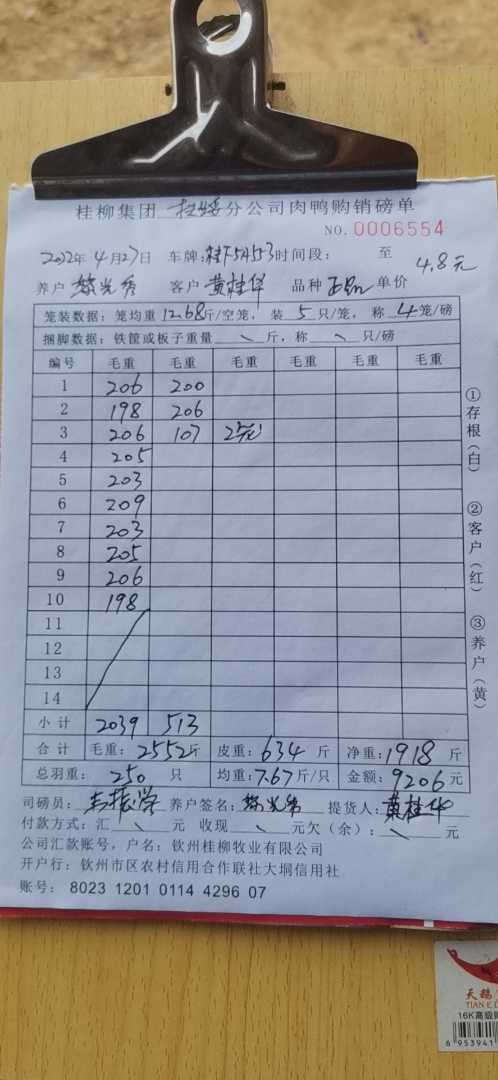 桂柳集团 扶绥分公司肉鸭购销磅单
NO. 0006554
2022年4月27日 车牌:桂F5A553时间段: 至
养户 光秀 客户 黄桂华 品种 单价 4.8元
笼装数据: 笼均重 12.68斤/空笼, 装 5 只/笼, 称 4 笼/磅
捆脚数据: 铁筐或板子重量 \ 斤, 称 \ 只/磅
编号 毛重 毛重 毛重 毛重 毛重
1 206 200
2 198 206
3 206 107 2笼
4 205
5 203
6 209
7 203
8 205
9 206
10 198
11
12
13
14
小计 2039 513
合计 毛重: 2552斤 皮重: 634 斤 净重: 1918 斤
总羽重: 250 只 均重: 7.67斤/只 金额: 9206元
司磅员: 振学 养户签名: 光秀 提货人: 黄桂华
付款方式: 汇 \ 元 收现 \ 元欠(余): \ 元
公司汇款账号, 户名: 钦州桂柳牧业有限公司
开户行: 钦州市区农村信用合作联社大垌信用社
账号: 8023 1201 0114 4296 07
①存根(白)
②客户(红)
③养户(黄
天鹅
TIAN E
16K高级
6 953941